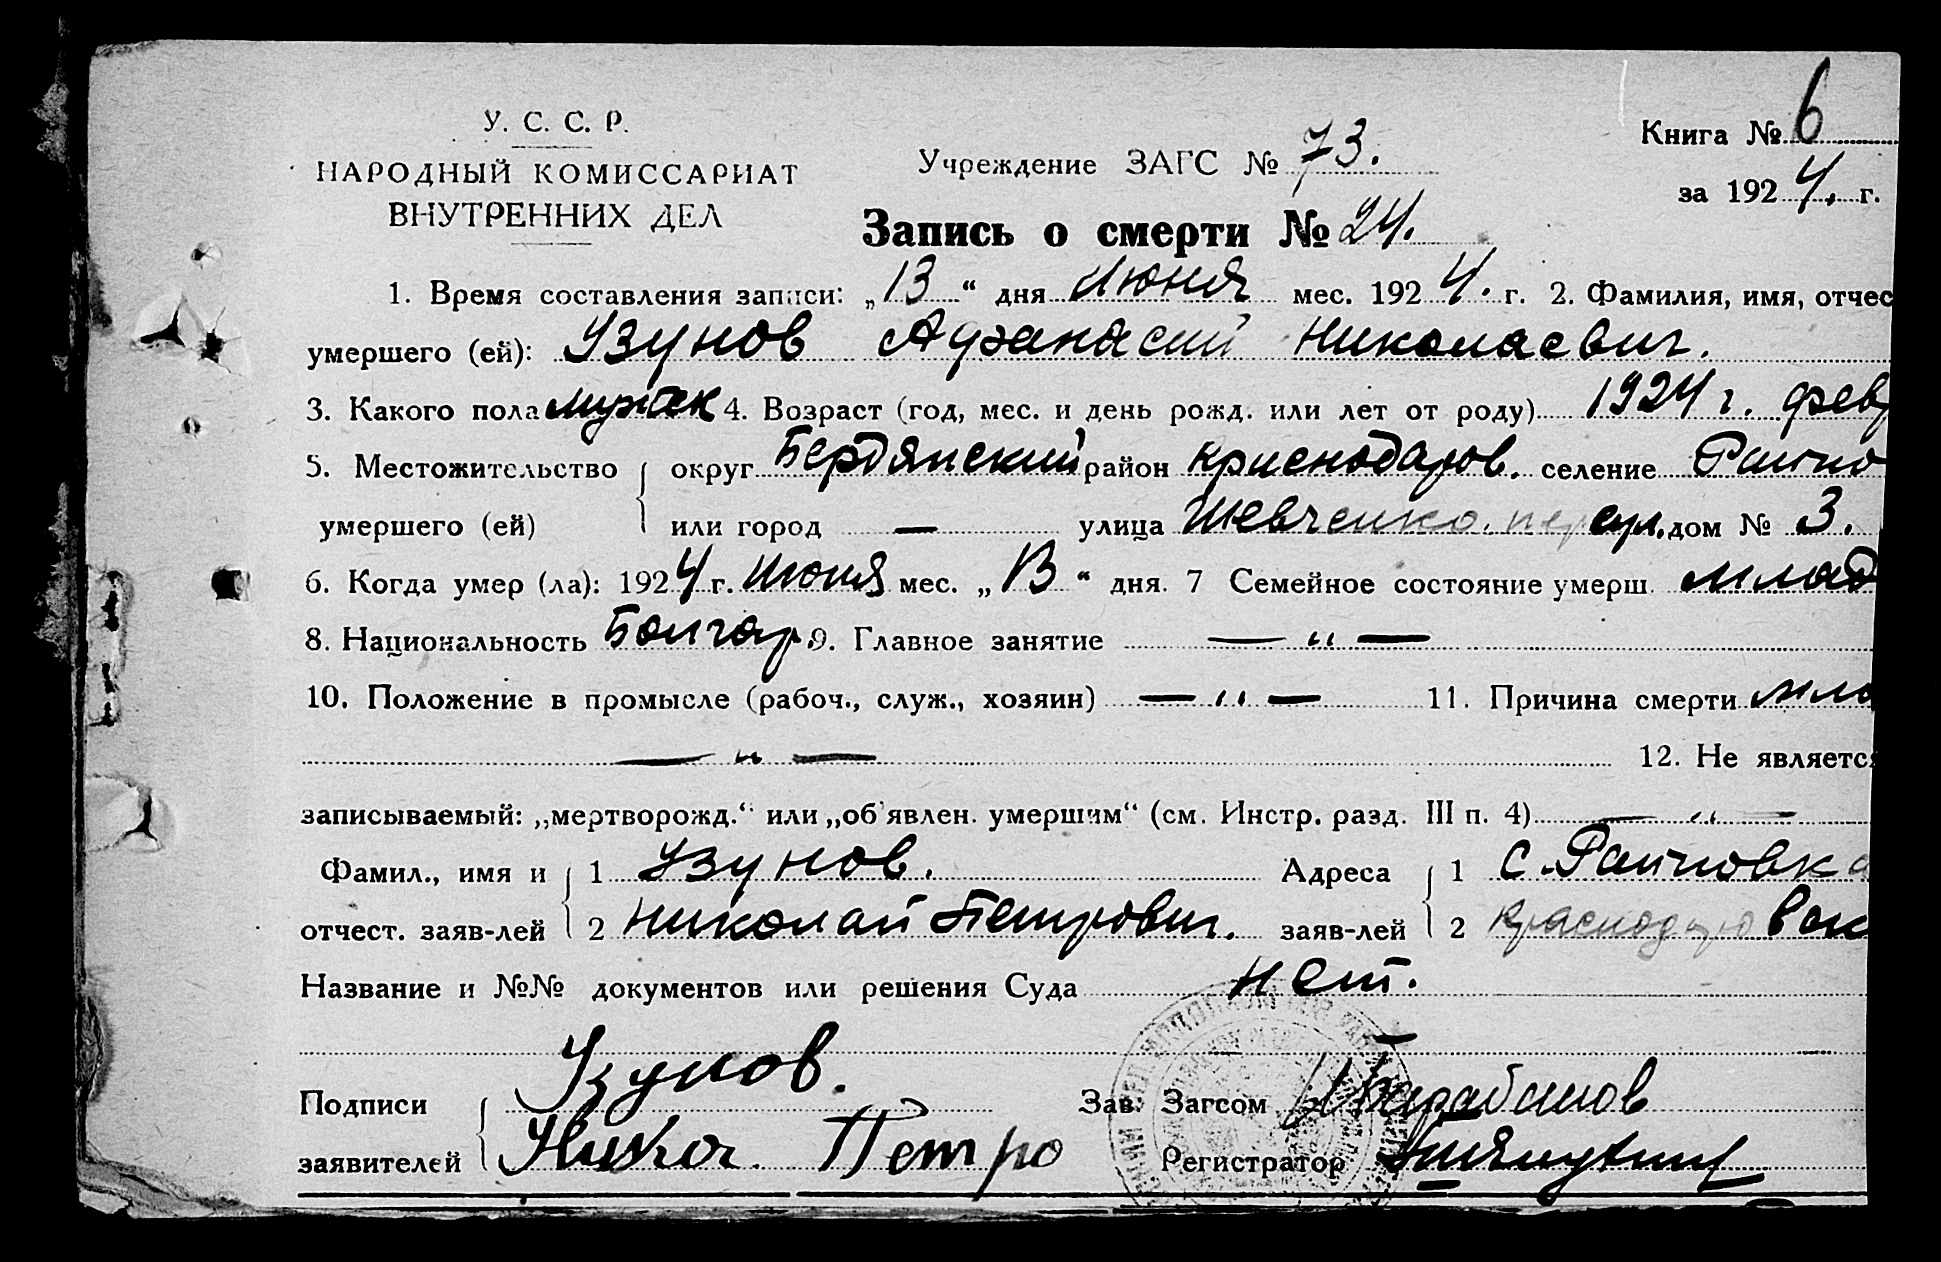 У. С. С. Р.
НАРОДНЫЙ КОМИССАРИАТ
ВНУТРЕННИХ ДЕЛ
Учреждение ЗАГС № 73.
Книга № 6
за 1924. г.
Запись о смерти № 24.
1. Время составления записи: „13“ дня Июня мес. 1924. г. 2. Фамилия, имя, отчес
умершего (ей): Узунов Афанасий Николаевич.
3. Какого пола мужск 4. Возраст (год, мес. и день рожд. или лет от роду) 1924 г. февр
5. Местожительство округ Бердянский район Краснодаров. селение
умершего (ей) или город — улица Шевченко. дом № 3.
6. Когда умер (ла): 1924 г. Июня мес. „13“ дня. 7 Семейное состояние умерш. млад
8. Национальность Болгар. 9. Главное занятие — „ —
10. Положение в промысле (рабоч., служ., хозяин) — „ — 11. Причина смерти мла
— „ — 12. Не являетс
записываемый: „мертворожд.“ или „об'явлен. умершим“ (см. Инстр. разд. III п. 4) — „ —
Фамил., имя и 1 Узунов. Адреса 1 с.
отчест. заяв-лей 2 Николай Петрович. заяв-лей 2
Название и №№ документов или решения Суда нет.
Подписи Узунов. Зав. Загсом Барабанов
заявителей Никол. Петро Регистратор